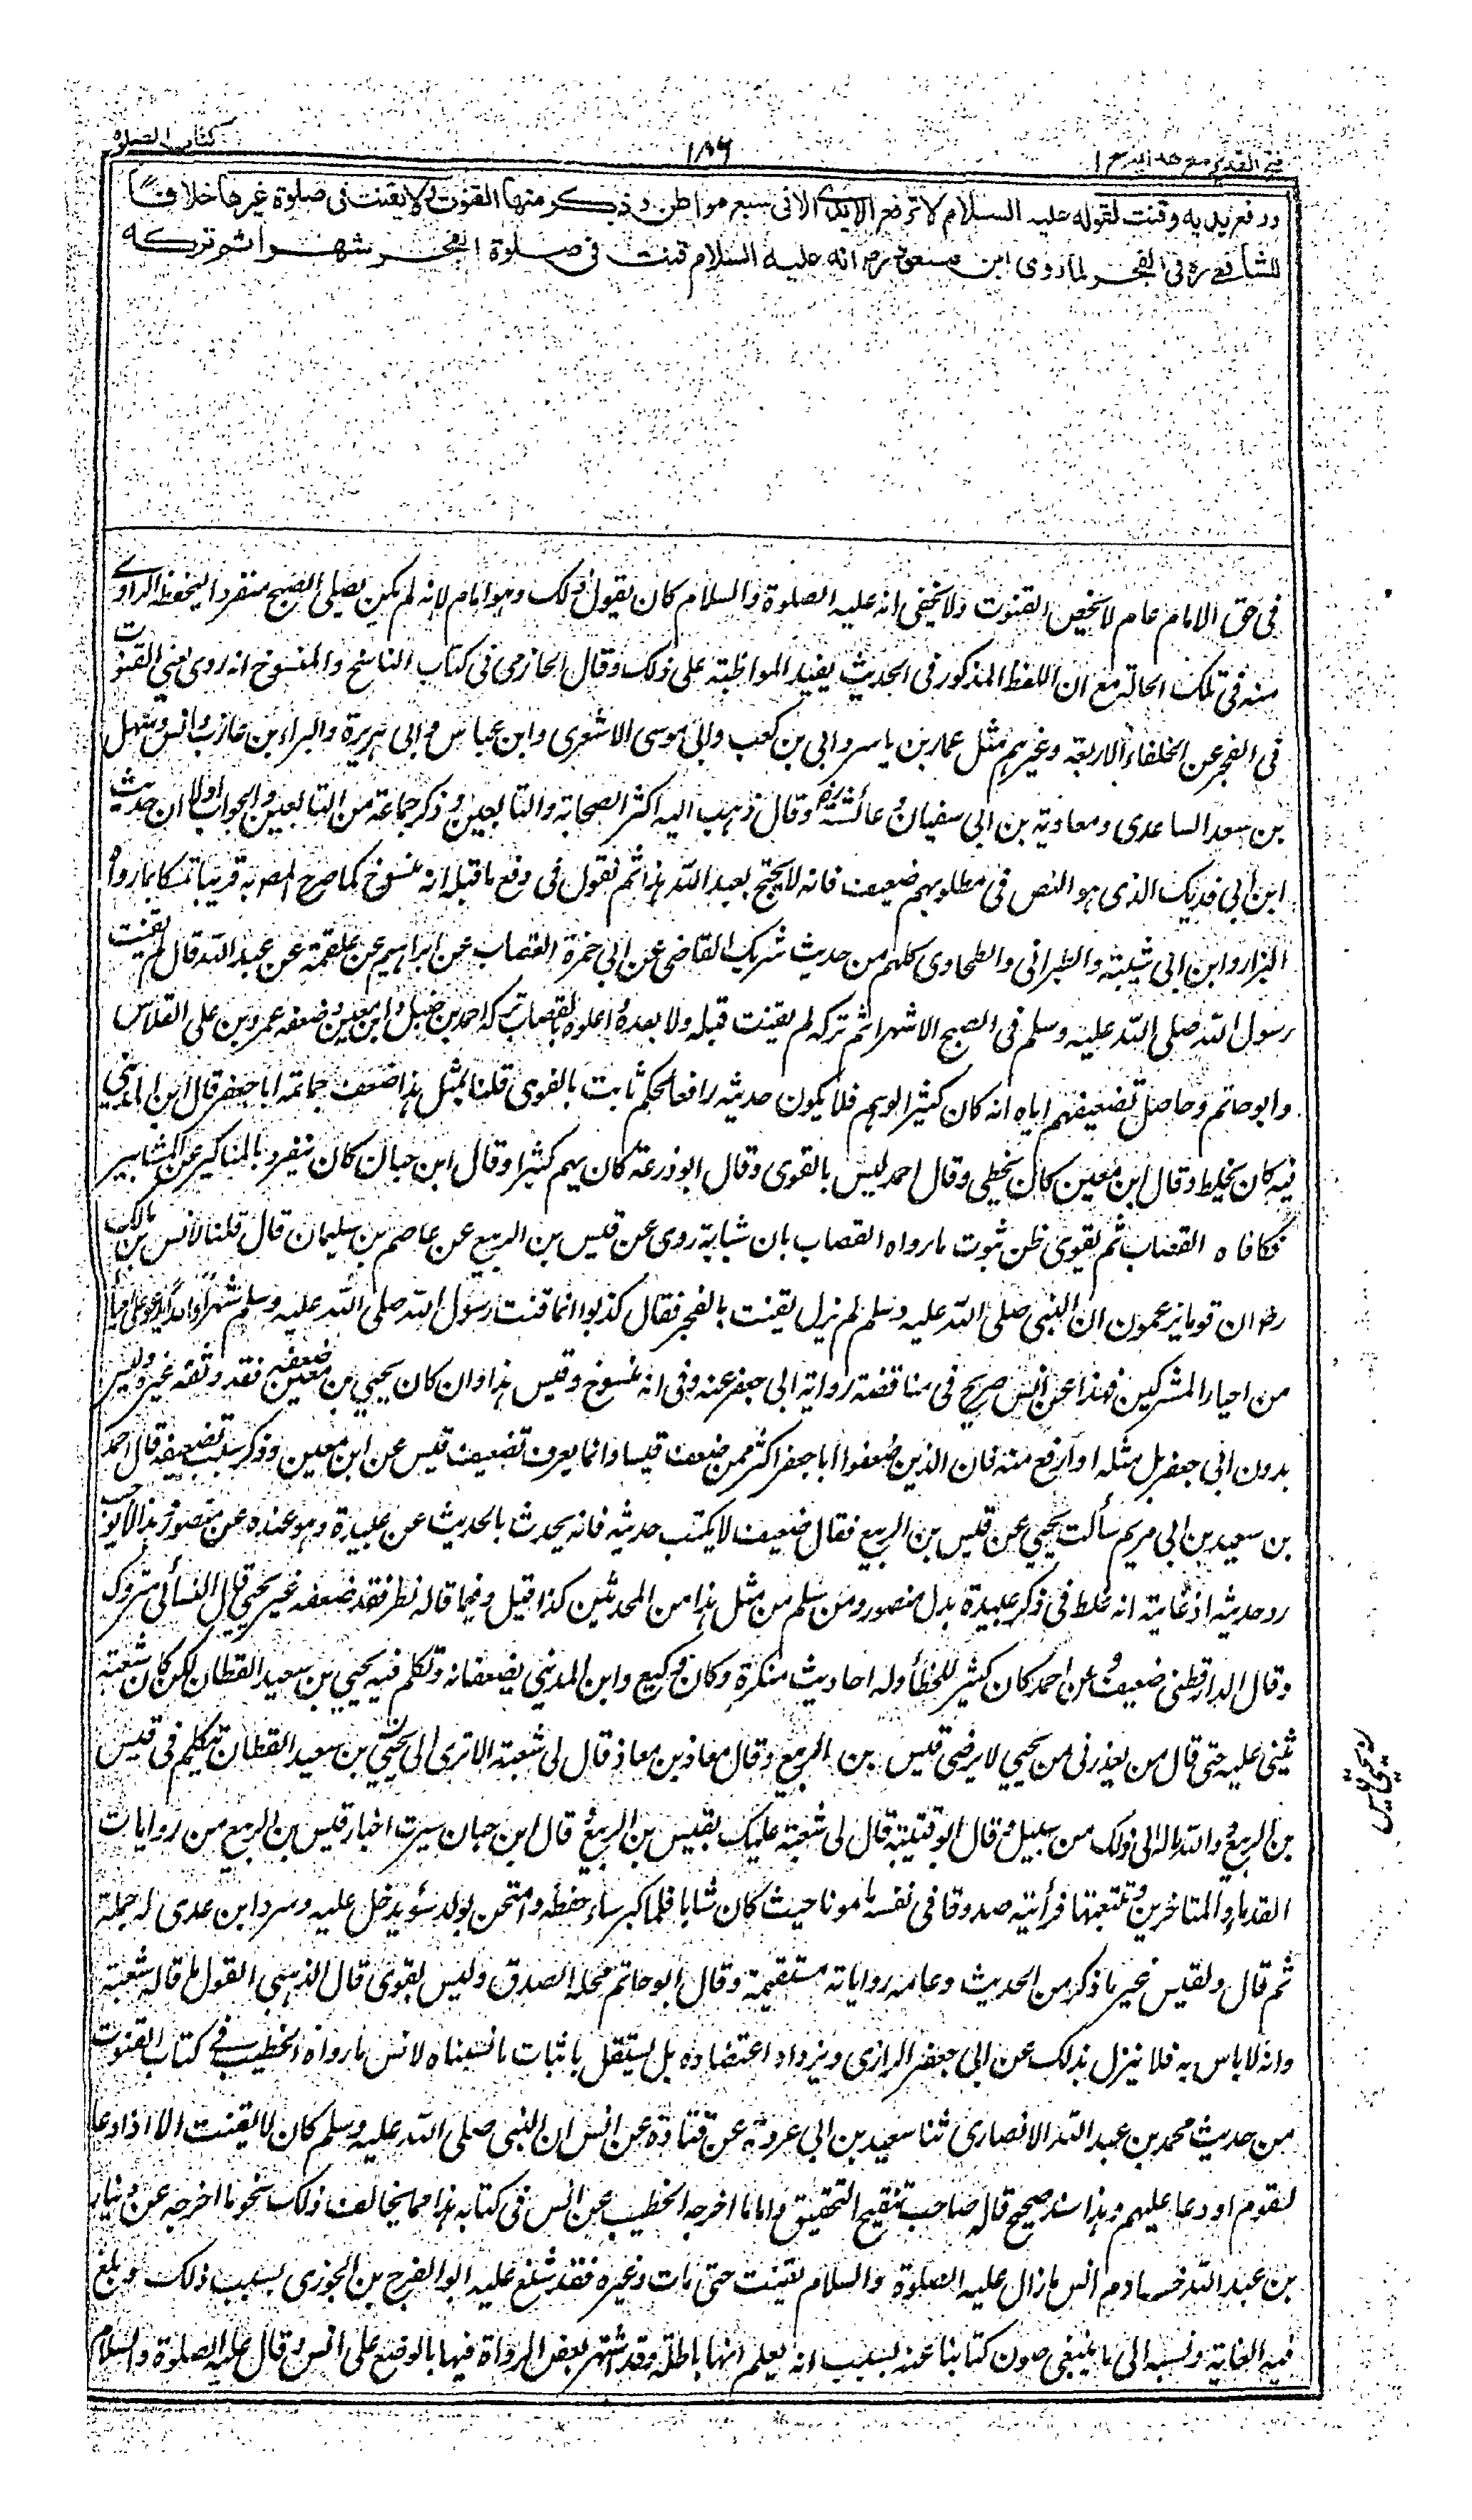 فتح القدير مع هدايه ج ١
١٨٦
كتاب الصلوة
ورفع يديه وقنت لقوله عليه السلام لا ترفع الايدي الا فى سبع مواطن وذكر منها القنوت ولا يقنت فى صلوة غيرها خلافًا
للشافعى ره فى الفجر لما روى ابن مسعود رض انه عليه السلام قنت فى صلوة الفجر شهرا ثم تركه
فى حق الامام عام لا يخص القنوت ولا يخفى انه عليه الصلوة والسلام كان يقول ذلك وهو امام لانه لم يكن يصلى الصبح منفردا ليحفظ الراوى
منه فى تلك الحالة مع ان اللفظ المذكور فى الحديث يفيد المواظبة على ذلك وقال الحازمى فى كتاب الناسخ والمنسوخ انه روى يعنى القنوت
فى الفجر عن الخلفاء الاربعة وغيرهم مثل عمار بن ياسر وابى بن كعب وابى موسى الاشعرى وابن عباس وابى هريرة والبراء بن عازب وانس وسهل
بن سعد الساعدى ومعاوية بن ابى سفيان وعائشة رض وقال ذهب اليه اكثر الصحابة والتابعين وذكر جماعة من التابعين والجواب اولا ان حديث
ابن ابى فديك الذى هو النص فى مطلوبهم ضعيف فانه لا يحتج بعبد الله هذا ثم نقول فى دفع ما قبله انه منسوخ كما صرح المص به قريبا تمسكا بما رواه
البزار وابن ابى شيبة والطبرانى والطحاوى كلهم من حديث شريك القاضى عن ابى حمزة القصاب عن ابراهيم عن علقمة عن عبد الله قال لم يقنت
رسول الله صلى الله عليه وسلم فى الصبح الا شهرا ثم تركه لم يقنت قبله ولا بعده واعلوه بالقصاب تركه احمد بن حنبل وابن معين وضعفه عمرو بن على الفلاس
وابو حاتم وحاصل تضعيفهم اياه انه كان كثير الوهم فلا يكون حديثه رافعا لحكم ثابت بالقوى قلنا بمثل هذا ضعف جماعة ابا جعفر قال ابن المدينى
فيه كان يخلط وقال ابن معين كان يخطى وقال احمد ليس بالقوى وقال ابو زرعة كان يهم كثيرا وقال ابن حبان كان ينفرد بالمناكير عن المشاهير
فكافاه القصاب ثم يقوى ظن ثبوت ما رواه القصاب بان شبابة روى عن قيس بن الربيع عن عاصم بن سليمان قال قلنا لانس بن مالك
رض ان قوما يزعمون ان النبى صلى الله عليه وسلم لم يزل يقنت بالفجر فقال كذبوا انما قنت رسول الله صلى الله عليه وسلم شهرًا واحدًا يدعو على احياء
من احياء المشركين فهذا عن انس صريح فى مناقضة رواية ابى جعفر عنه وفى انه منسوخ وقيس هذا وان كان يحيى بن معين ضعفه فقد وثقه غيره وليس
بدون ابى جعفر بل مثله او ارفع منه فان الذين ضعفوا ابا جعفر اكثر ممن ضعف قيسا وانما يعرف تضعيف قيس عن ابن معين وذكر سبب تضعيفه قال احمد
بن سعيد بن ابى مريم سألت يحيى عن قيس بن الربيع فقال ضعيف لا يكتب حديثه فانه يحدث بالحديث عن عبيدة وهو عنده عن منصور وهذا لا يوجب
رد حديثه اذ غايته انه غلط فى ذكر عبيدة بدل منصور ومن سلم من مثل هذا من المحدثين كذا قيل وفيما قاله نظر فقد ضعفه غير يحيى قال النسائى متروك
وقال الدارقطنى ضعيف وعن احمد كان كثير الخطأ وله احاديث منكرة وكان وكيع وابن المدينى يضعفانه وتكلم فيه يحيى بن سعيد القطان لكن كان شعبة
يثنى عليه حتى قال من يعذرنى من يحيى لا يرضى قيس بن الربيع وقال معاذ بن معاذ قال لى شعبة الا ترى الى يحيى بن سعيد القطان يتكلم فى قيس
بن الربيع والله ما له الى ذلك من سبيل وقال ابو قتيبة قال لى شعبة عليك بقيس بن الربيع قال ابن حبان سبرت اخبار قيس بن الربيع من روايات
القدماء والمتاخرين وتتبعتها فرأيته صدوقا فى نفسه مامونا حيث كان شابا فلما كبر ساء حفظه وامتحن بولد سوء يدخل عليه وسرد ابن عدى له جملة
ثم قال ولقيس غير ما ذكر من الحديث وعامة رواياته مستقيمة وقال ابو حاتم محله الصدق وليس بقوى قال الذهبى القول ما قاله شعبة
وانه لا باس به فلا ينزل بذلك عن ابى جعفر الرازى ويزداد اعتضاده بل يستقل باثبات ما نسبناه لانس ما رواه الخطيب فى كتاب القنوت
من حديث محمد بن عبد الله الانصارى ثنا سعيد بن ابى عروبة عن قتادة عن انس ان النبى صلى الله عليه وسلم كان لا يقنت الا اذا دعا
لقوم او دعا عليهم وهذا سند صحيح قاله صاحب تنقيح التحقيق واما ما اخرجه الخطيب عن انس فى كتابه هذا مما يخالف ذلك نحو ما اخرجه عن دينار
بن عبد الله خادم انس ما زال عليه الصلوة والسلام يقنت حتى مات وغيره فقد شنع عليه ابو الفرج بن الجوزى بسبب ذلك وبلغ
فيه الغاية ونسبه الى ما ينبغى صون كتابنا عنه بسبب انه يعلم انها باطلة وقد اشتهر بعض الرواة فيها بالوضع على انس وقال عليه الصلوة والسلام